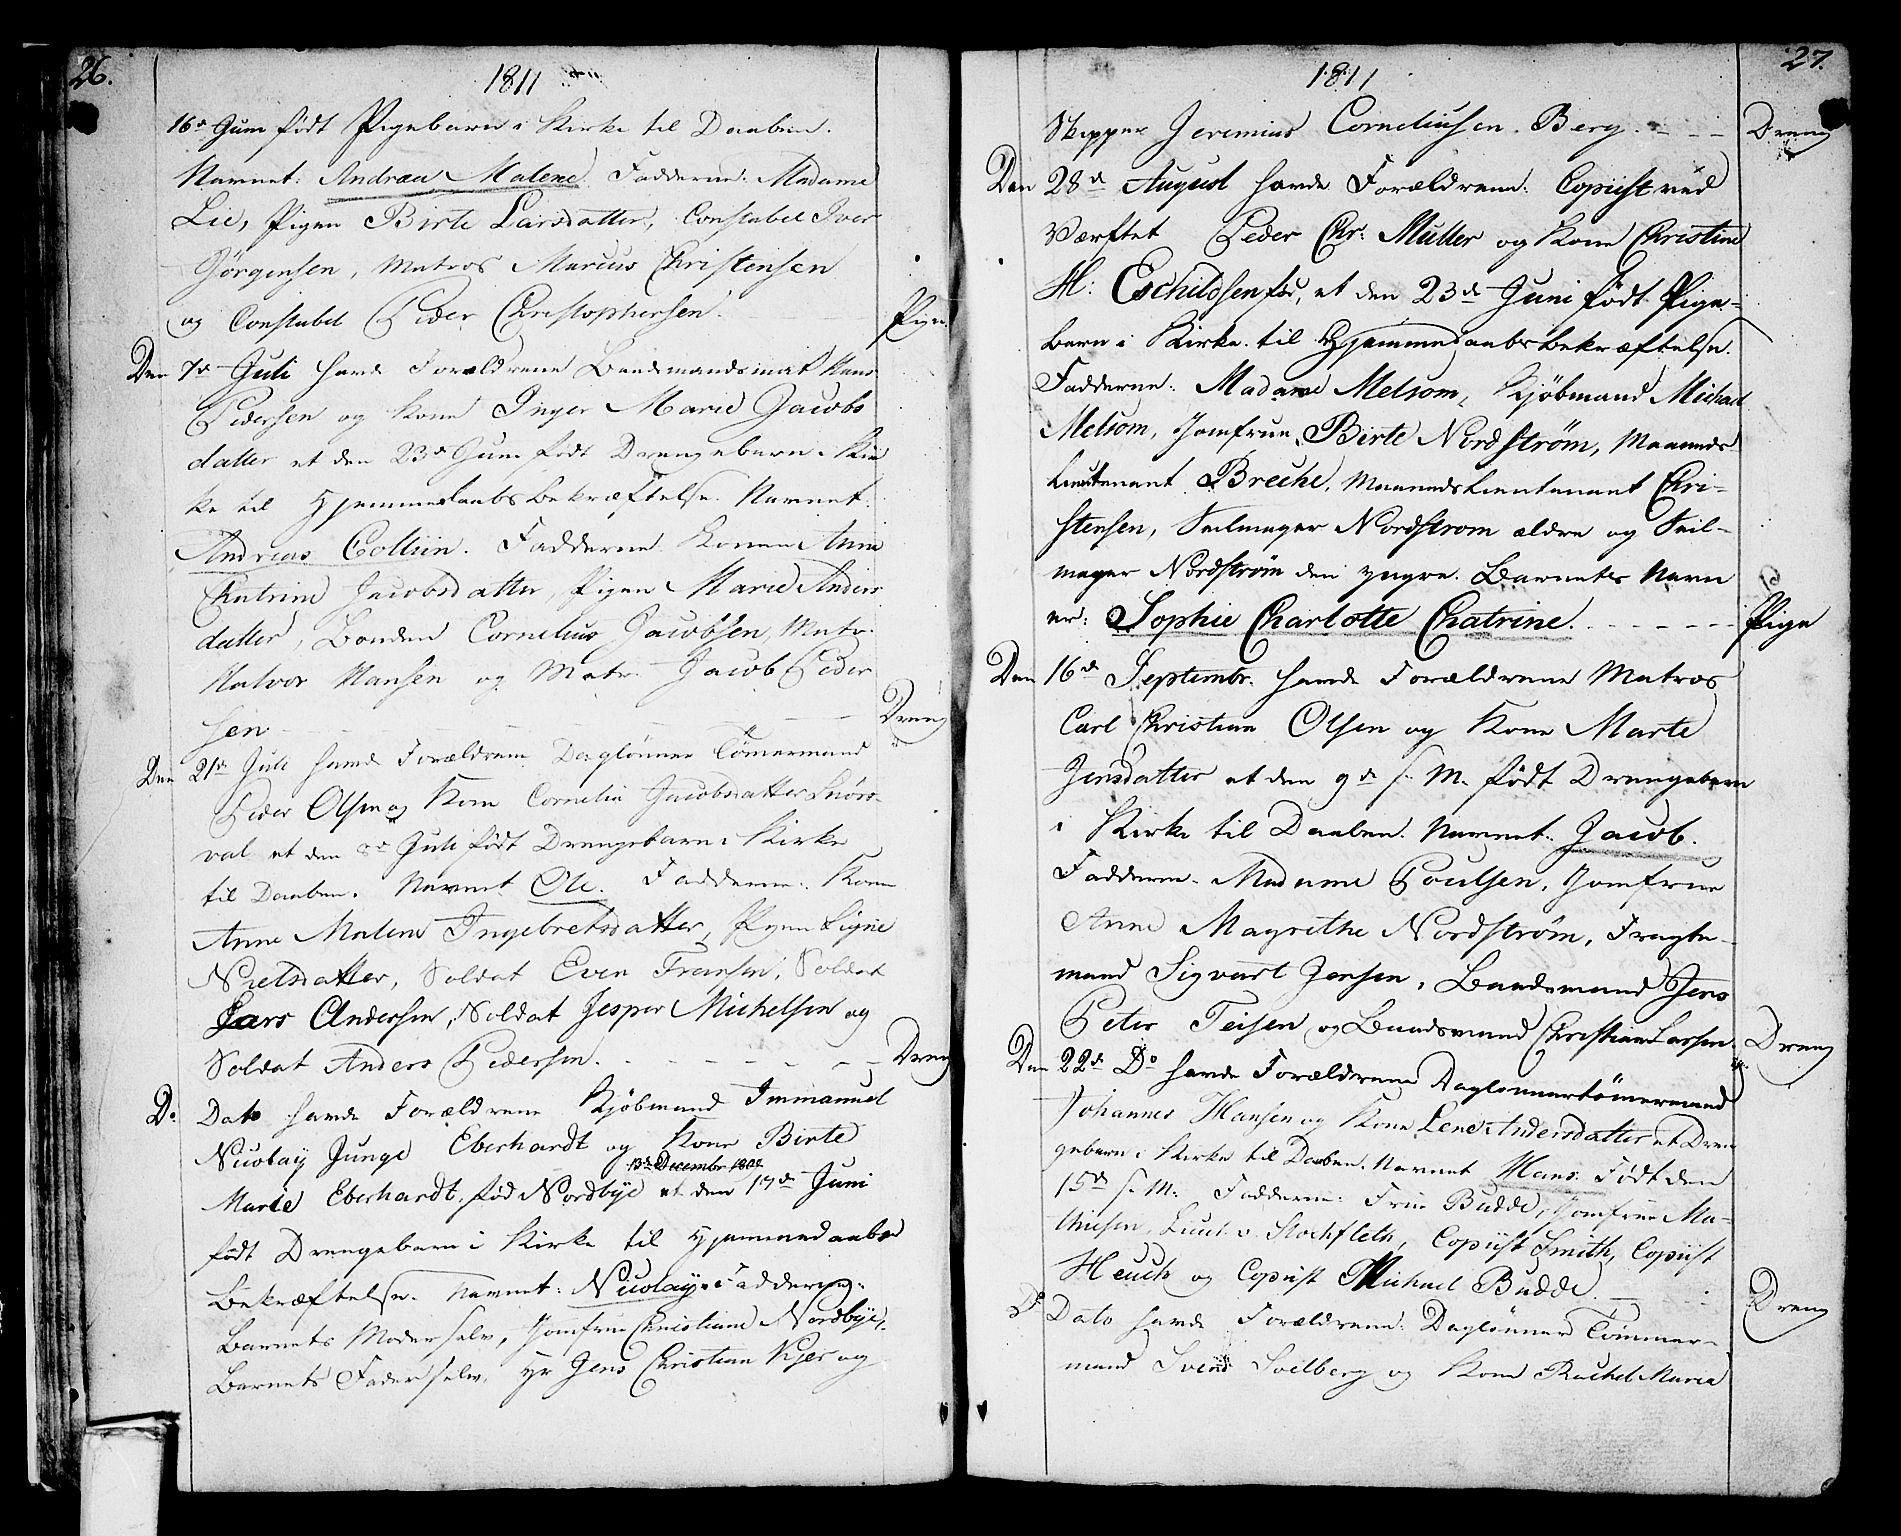 26.
1811
16d Juni født Pigebarn i Kirke til Daaben.
Navnet: Andrea Malene. Fadderne: Madame
Lie, Pigen Birte Larsdatter, Constabel Iver
Jörgensen, Matros Marcus Christensen
og Constabel Peder Christophersen. Pige.
Den 7d Juli havde Forældrene Baadsmandsmat Hans
Pedersen og Kone Inger Marie Jacobs
datter et den 23d Juni født Drengebarn i Kir
ke til Hjemmedaabs Bekræftelse. Navnet:
Andreas Collin. Fadderne: Konen Anne
Chatrine Jacobsdatter, Pigen Marie Anders
datter, Bonden Cornelius Jacobsen, Matr.
Halvor Hansen og Matr. Jacob Peder
sen Dreng
Den 21d Juli havde Forældrene Daglønner Tömermand
Peder Olsen og Kone Cornelia Jacobsdatter Snörs-
val et den 8d Juli født Drengebarn i Kirke
til Daaben. Navnet Ole. Fadderne: Kone
Anne Malene Ingebretsdatter, Pigen Signe
Nielsdatter, Soldat Even Fransen, Soldat
Lars Andersen, Soldat Jesper Michelsen og
Soldat Anders Pedersen. Dreng
Do Dato havde Forældrene Kjöbmand Immanuel
Nicolay Junge Eberhardt og Kone Birte
13de Decembr
Marie Eberhardt, fød Nordbye et den 17de Juni
født Drengebarn i Kirke til Hjemmedaabs
Bekræftelse. Navnet: Nicolay. Fadderne:
Barnets Moder selv, Jomfru Christiane Nordbye,
Barnets Fader selv, Hr Jens Christian Kjer og
27.
1811
Skipper Jeremias Corneliussen Berg. Dreng
Den 28d August havde Forældrene: Copiist ved
Værftet Peder Chr: Müller og Kone Christine
H: Eschildsen fød, et den 23d Juni født Pige-
barn i Kirke til Hjemmedaabs Bekræftelse.
Fadderne: Madame Melsom, Kjöbmand Michael
Melsom, Jomfrue Birte Nordström, Maaneds
Lieutenant Breche, Maaneds Lieutenant Chri-
stensen, Seilmager Nordstrom ældre og Seil-
mager Nordström den yngre. Barnets Navn
er: Sophie Charlotte Chatrine. Pige
Den 16d Septembr. havde Forældrene Matros
Carl Christian Olsen og Kone Marte
Jensdatter et den 9d s. M. født Drengebarn
i Kirke til Daaben. Navnet: Jacob.
Fadderne. Madame Poulsen, Jomfrue
Anne Magrethe Nordström, Fragte-
mand Sigvart Jensen, Baadsmand Jens
Peter Teisen og Baadsmand Christian Larsen. Dreng
Den 22d Do havde Forældrene Daglonnertömermand
Johannes Hansen og Kone Lene Andersdatter et Dren
gebarn i Kirke til Daaben. Navnet Hans. Født den
15d s. M. Fadderne: Frue Budde, Jomfrue Ma-
thiesen, Lieut. v. Stockfleth, Copiist Smith, Copiist
Heuch og Copiist Michael Budde. Dreng
Do Dato havde Forældrene: Daglönner Tömmer-
mand Svend Soelberg og Kone Rachel Maria